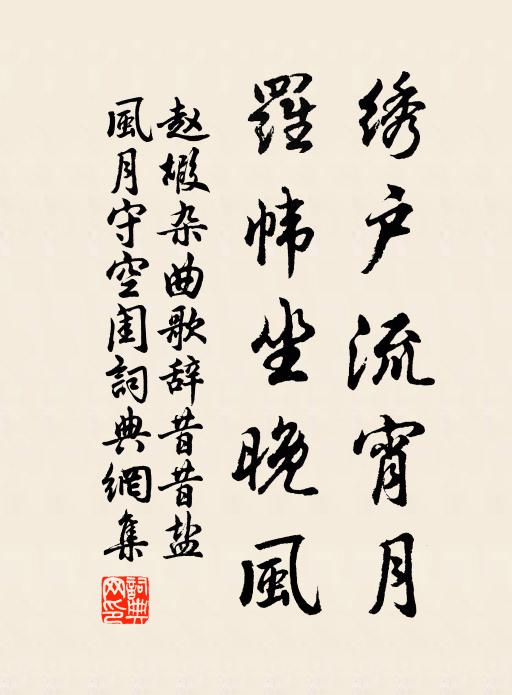 绣户流宵月
羅帏坐晚風
赵嘏杂曲歌辞昔昔盐
風月守空闺詞典網集
詞典网印